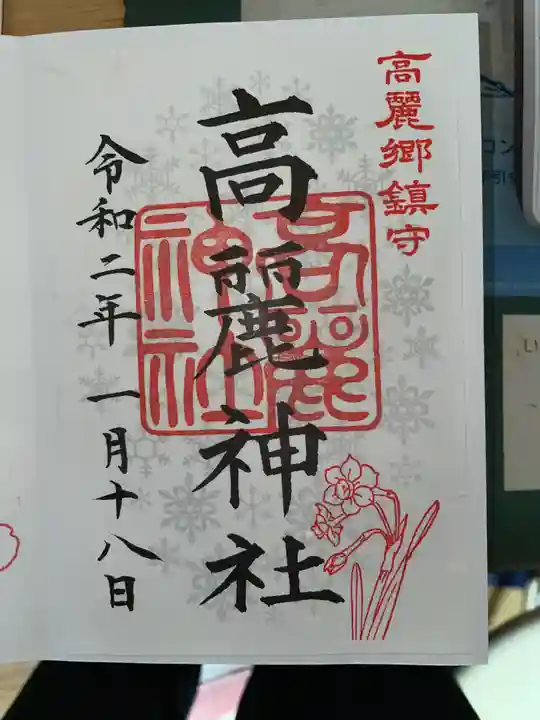 高麗郷鎮守
高麗神社
高麗神社
令和二年 一月十八日
コン
い